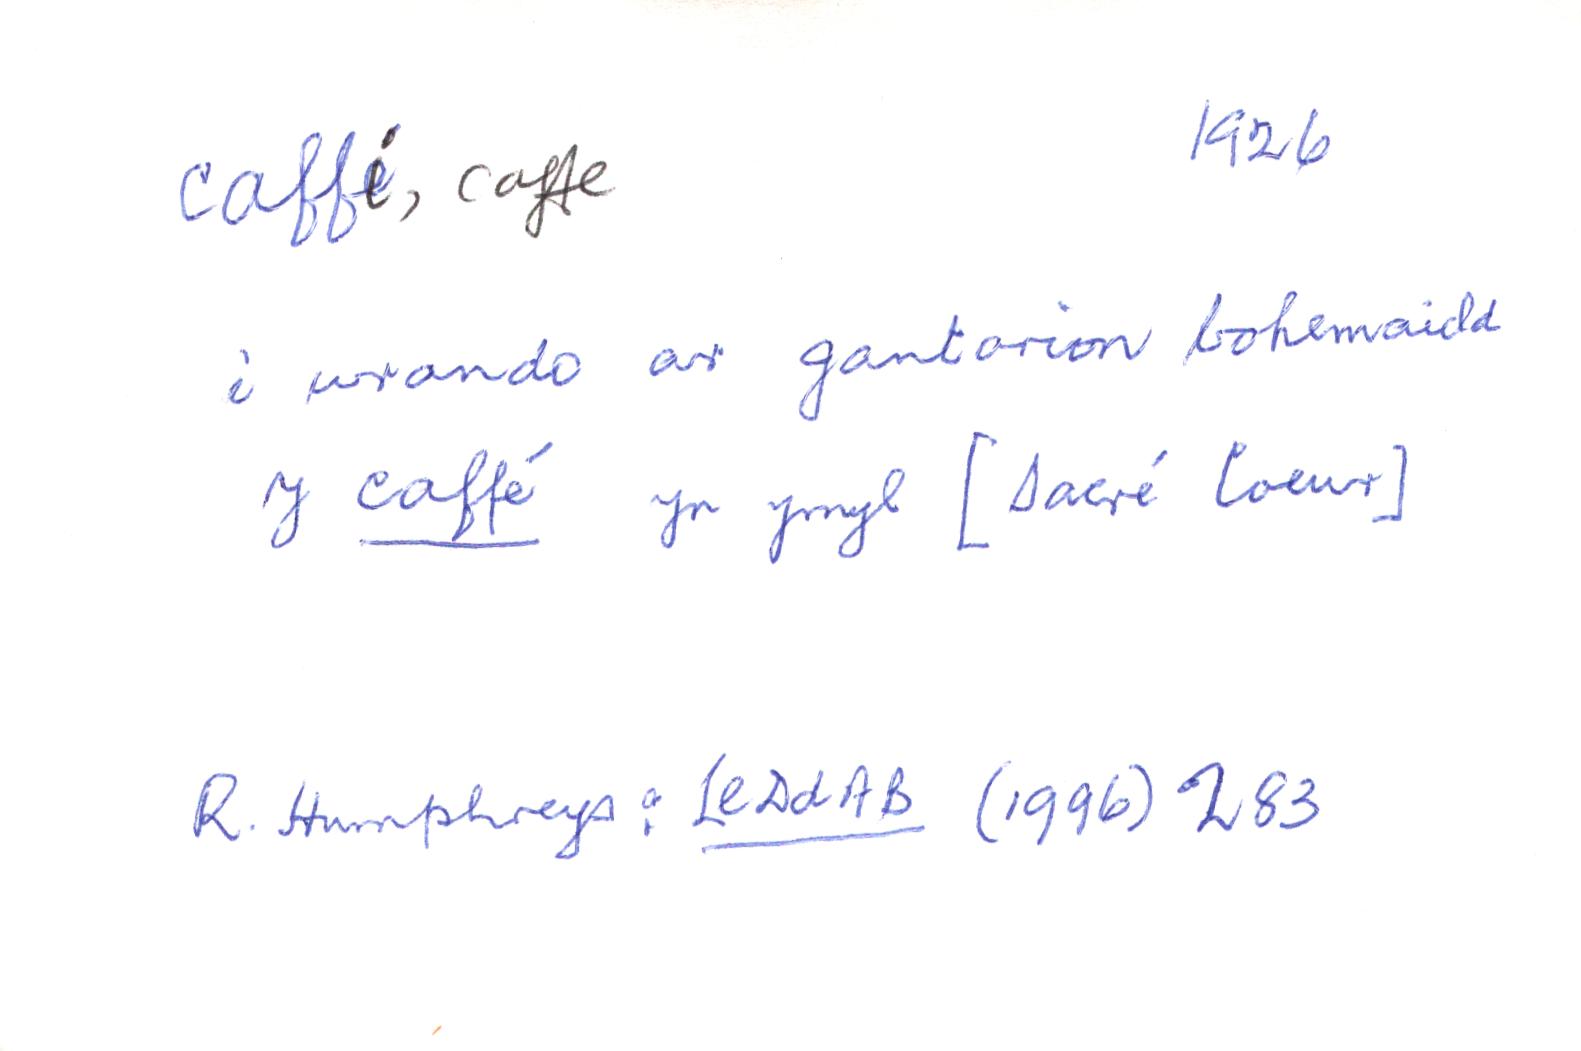 caffi, caffe 1926
i wrando ar gantorion bohemaidd
y caffé yn ymyl [Sacré Coeur]
R. Humphreys: LeDdAB (1996) 283